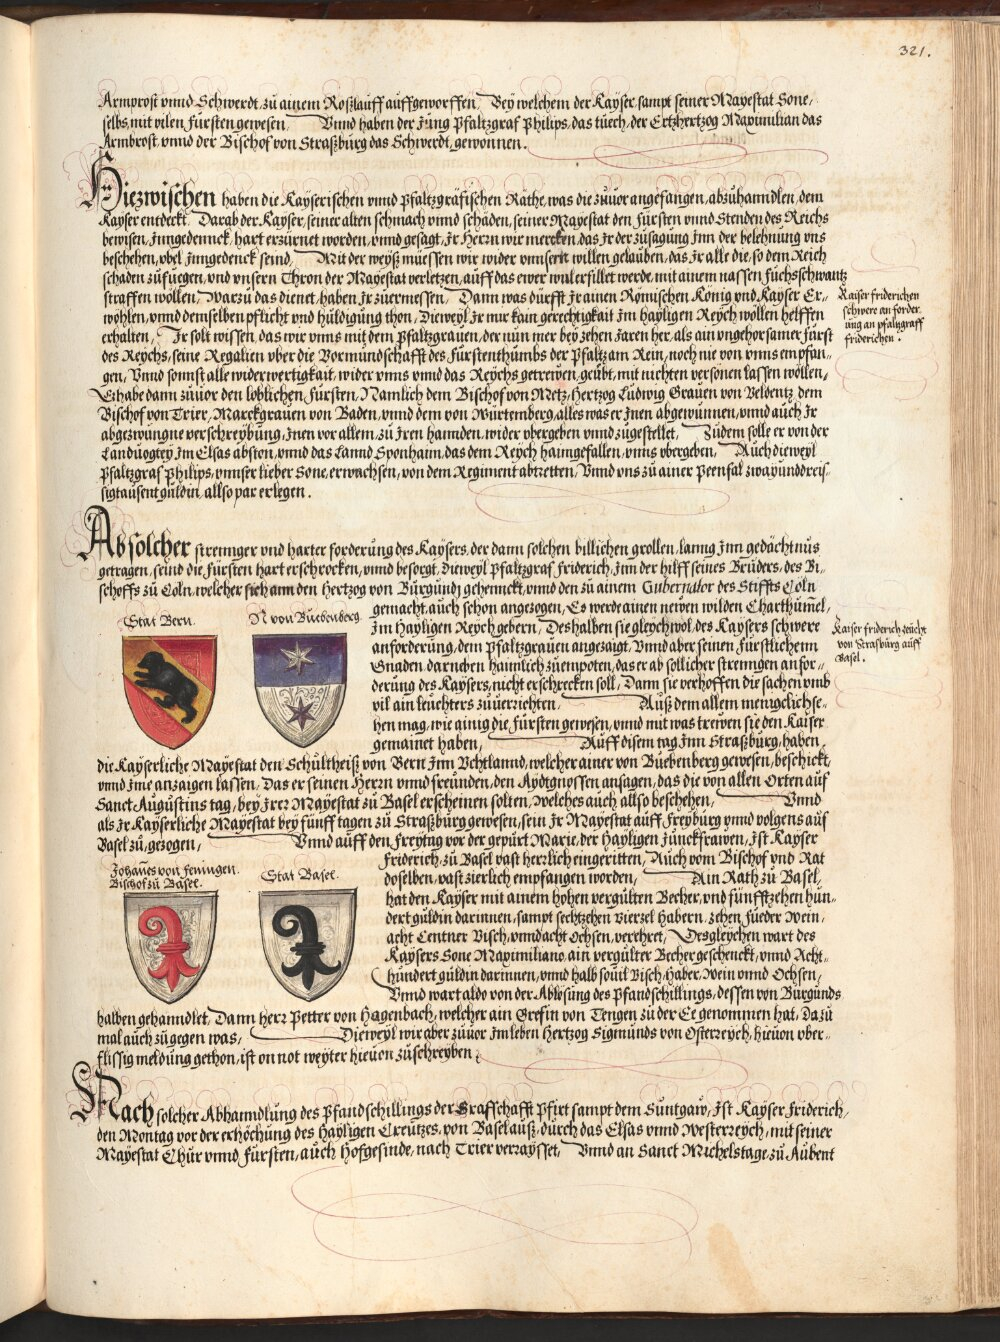 321.
Armprost vnnd Schwerdt, zu ainem Roßlauff auffgeworffen, Bey welchem der Kayser, sampt seiner Mayestat Sone,
selbs, mit vilen Fürsten gewesen, Vnnd haben der Jung Pfaltzgraf Philips, das tüech, der Ertzhertzog Maximilian das
Armbrost, vnnd der Bischof von Straßburg das Schwerdt, gewonnen.
Hiezwischen haben die Kayserischen vnnd Pfaltzgräfischen Räthe, was die zuuor angefangen, abzuhanndlen, dem
Kayser entdeckt, Darab der Kayser, seiner alten schmach vnnd schaden, seiner Mayestat den Fürsten vnnd Stenden des Reichs
bewisen, Jnngedennck, hart erzürnet worden, vnnd gesagt, Jr Herrn wir mercken, das Jr der zusagung Jnn der belehnung vns
beschehen, vbel Jnngedenck seind, Mit der weyß müessen wir wider vnnsern willen gelauben, das Jr alle die, so dem Reich
schaden zufuegen, vnd vnsern Thron der Mayestat verletzen, auff das ewer will erfillet werde, mit ainem nassen Fuchsschwantz
straffen wöllen, Warzu das dienet, haben Jr zuermessen, Dann was dürfft Jr ainen Römischen König vnd Kayser Er-
wöhlen, vnnd demselben pflicht vnd huldigung thon, Dieweyl Jr mir kain gerechtigkait Jm hayligen Reych wöllen helffen
erhalten, Jr solt wissen, das wir vnns mit dem Pfaltzgrauen, der nun mer bey zehen Jaren her, als ain vngehorsamer Fürst
des Reychs, seine Regalien vber die Vormundschafft des Fürstenthumbs der Pfaltz am Rein, noch nie von vnns empfan-
gen, Vnnd sonnst alle widerwertigkait, wider vnns vnnd das Reychs getrewen, geübt, mit nichten versonen lassen wöllen,
Er habe dann zuuor den loblichen Fürsten, Namlich dem Bischof von Metz, Hertzog Ludwig Grauen von Veldentz, dem
Bischof von Trier, Marckgrauen von Baden, vnnd dem von Würtemberg, alles was er Jnen abgewunnen, vnnd auch Jr
abgezwungne verschreybung, Jnen vor allem, zu Jren hannden, wider vbergeben vnnd zugestellet, Zudem solle er von der
Landuogtey Jm Elsas abston, vnnd das Lannd Sponhaim, das dem Reych haimgefallen, vnns vbergeben, Auch dieweyl
Pfaltzgraf Philips, vnnser lieber Sone, erwachsen, von dem Regiment abtretten, Vnnd vns zu ainer Peenfal zwayunddreis-
sigtausent guldin, allso par erlegen.
Kaiser Friderichen
schwere an forder
ung an pfaltzgraff
Friderichen.
Ab solcher strennger vnd harter forderung des Kaysers, der dann solchen billichen grollen, lanng Jnn gedächtnus
getragen, seind die Fürsten hart erschrocken, vnnd besorgt, Dieweyl Pfaltzgraf Friderich, Jnn der hilff seines Bruders, des Bi-
schoffs zu Cöln, welcher sich ann den Hertzog von Burgundj gehennckt, vnnd den zu ainem Gubernator des Stiffts Cöln
gemacht, auch schon angezogen, Es werde ainen newen wilden Charthumel,
Jm Hayligen Reych gebern, Deshalben sie gleychwol, des Kaysers schwere
anforderung, dem Pfaltzgrauen angezaigt, Vnnd aber seinen Fürstlichenn
Gnaden, darneben haimlich zuempoten, das er ab sollicher strenngen anfor-
derung des Kaysers, nicht erschrecken soll, Dann sie verhoffen die sachen vmb
vil ain leuchters zuuerrichten, Auß dem allem menigclich se-
hen mag, wie ainig die Fürsten gewesen, vnnd mit was trewen sie den Kaiser
gemainet haben, Auff disem tag Jnn Straßburg, haben
Stat Bern.
N von Buebenberg.
Kaiser Friderich zeucht
von Strasburg auff
Basel.
die Kayserliche Mayestat den Schultheiß von Bern Jnn Vchtlannd, welcher ainer von Büebenberg gewesen, beschickt,
vnnd Jme anzaigen lassen, Das er seinen Herrn vnnd freunden, den Aydtgnossen ansagen, das die von allen Orten auf
Sanct Augustins tag, bey Jrer Mayestat zu Basel erscheinen solten, welches auch allso beschehen, Vnnd
als Jr Kayserliche Mayestat bey fünff tagen zu Straßburg gewesen, sein Jr Mayestat auff Freyburg vnnd volgens auf
Basel zu, gezogen, Vnnd auff den Freytag vor der gepurt Marie, der Hayligen Junckfrawen, Jst Kayser
Johanes von Feningen.
Bischof zu Basel.
Stat Basel.
Friderich, zu Basel vast herrlich eingeritten, Auch vom Bischof vnd Rat
doselben, vast zierlich empfangen worden, Ain Rath zu Basel,
hat den Kayser mit ainem hohen vergulten Becher, vnd fünfftzehen hun-
dert guldin darinnen, sampt sechtzehen Vierzel Habern, zehen Fueder Wein,
acht Centner Visch, vnnd acht Ochsen, verehret, Desgleychen wart des
Kaysers Sone Maximiliano, ain vergülter Becher geschenckt, vnnd Acht-
hundert guldin darinnen, vnnd halb souil Visch, Haber, Wein vnnd Ochsen,
Vnnd wart aldo von der Ablosung des Pfandschillings, dessen von Burgunds
halben gehanndlet, Dann herr Petter von Hagenbach, welcher ain Grefin von Tengen zu der Ee genommen hat, Da zu
mal auch zugegen was, Dieweyl wir aber zuuor Jm leben Hertzog Sigmunds von Osterreych, hieuon vber-
flissig meldung gethon, ist on not weyter hieuon zuschreyben.
Nach solcher Abhanndlung des Pfandschillings der Graffschafft Pfirt sampt dem Suntgaw, Jst Kayser Friderich,
den Montag vor der erhöchung des Hayligen Creutzes, von Basel auß, durch das Elsas vnnd Westerreych, mit seiner
Mayestat Chur vnnd Fürsten, auch Hofgesinde, nach Trier verraysset, Vnnd an Sanct Michelstage, zu Aubent